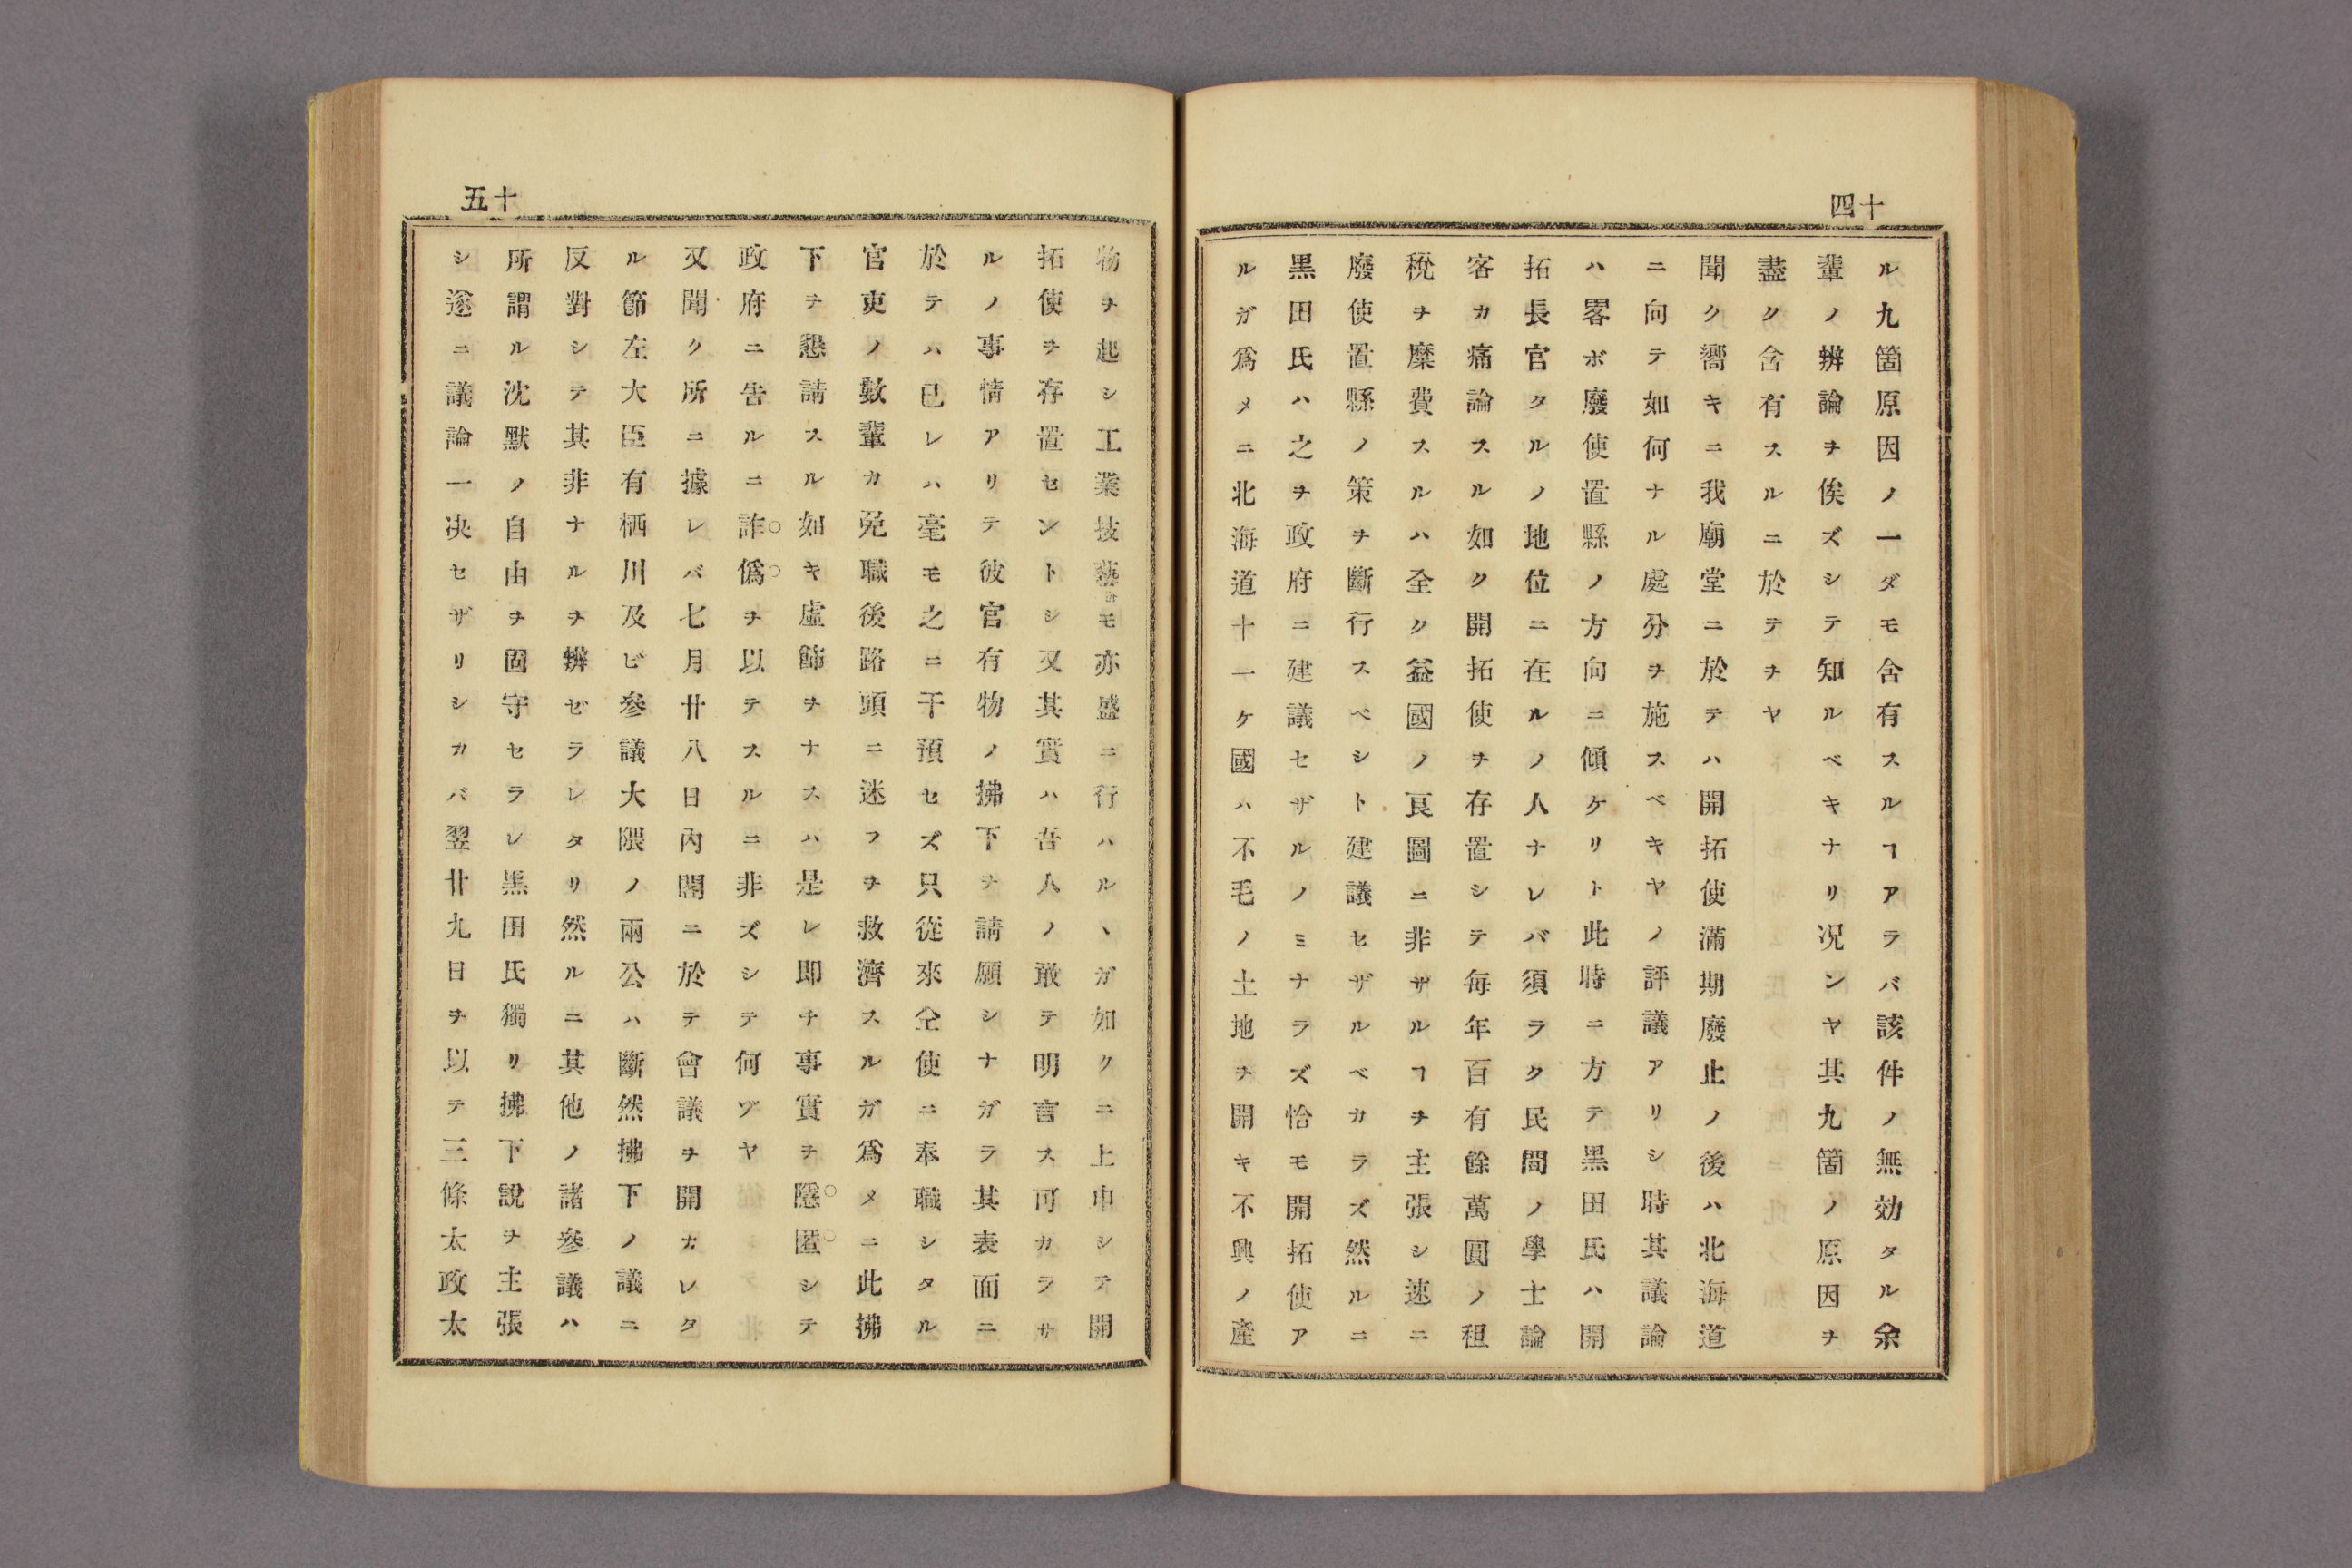 十四
ル九箇原因ノ一ダモ含有スルヿアラバ該件ノ無効タル余
輩ノ辨論ヲ俟ズシテ知ルベキナリ况ンヤ其九箇ノ原因ヲ
盡ク含有スルニ於テヲヤ
聞ク嚮キニ我廟堂ニ於テハ開拓使滿期廢止ノ後ハ北海道
ニ向テ如何ナル處分ヲ施スベキヤノ評議アリシ時其議論
ハ畧ボ廢使置縣ノ方向ニ傾ケリト此時ニ方テ黑田氏ハ開
拓長官タルノ地位ニ在ルノ人ナレバ須ラク民間ノ學士論
客カ痛論スル如ク開拓使ヲ存置シテ每年百有餘萬圓ノ租
稅ヲ糜費スルハ全ク益國ノ良圖ニ非サルヿヲ主張シ速ニ
廢使置縣ノ策ヲ斷行スベシト建議セザルベカラズ然ルニ
黑田氏ハ之ヲ政府ニ建議セザルノミナラズ恰モ開拓使ア
ルガ爲メニ北海道十一ケ國ハ不毛ノ土地ヲ開キ不興ノ產
十五
物ヲ起シ工業技藝モ亦盛ニ行ハルヽガ如クニ上申シテ開
拓使ヲ存置セントシ又其實ハ吾人ノ敢テ明言ス可カラサ
ルノ事情アリテ彼官有物ノ拂下ヲ請願シナガラ其表面ニ
於テハ已レハ毫モ之ニ干預セズ只從來仝使ニ奉職シタル
官吏ノ數輩カ免職後路頭ニ迷フヲ救濟スルガ爲メニ此拂
下ヲ懇請スル如キ虛飾ヲナスハ是レ即チ事實ヲ隱匿シテ
政府ニ告ルニ詐僞ヲ以テスルニ非ズシテ何ゾヤ
又聞ク所ニ據レバ七月廿八日內閣ニ於テ會議ヲ開カレタ
ル節左大臣有栖川及ビ參議大隈ノ兩公ハ斷然拂下ノ議ニ
反對シテ其非ナルヲ辨ゼラレタリ然ルニ其他ノ諸參議ハ
所謂ル沈默ノ自由ヲ固守セラレ黑田氏獨リ拂下說ヲ主張
シ遂ニ議論一决セザリシカバ翌廿九日ヲ以テ三條太政太